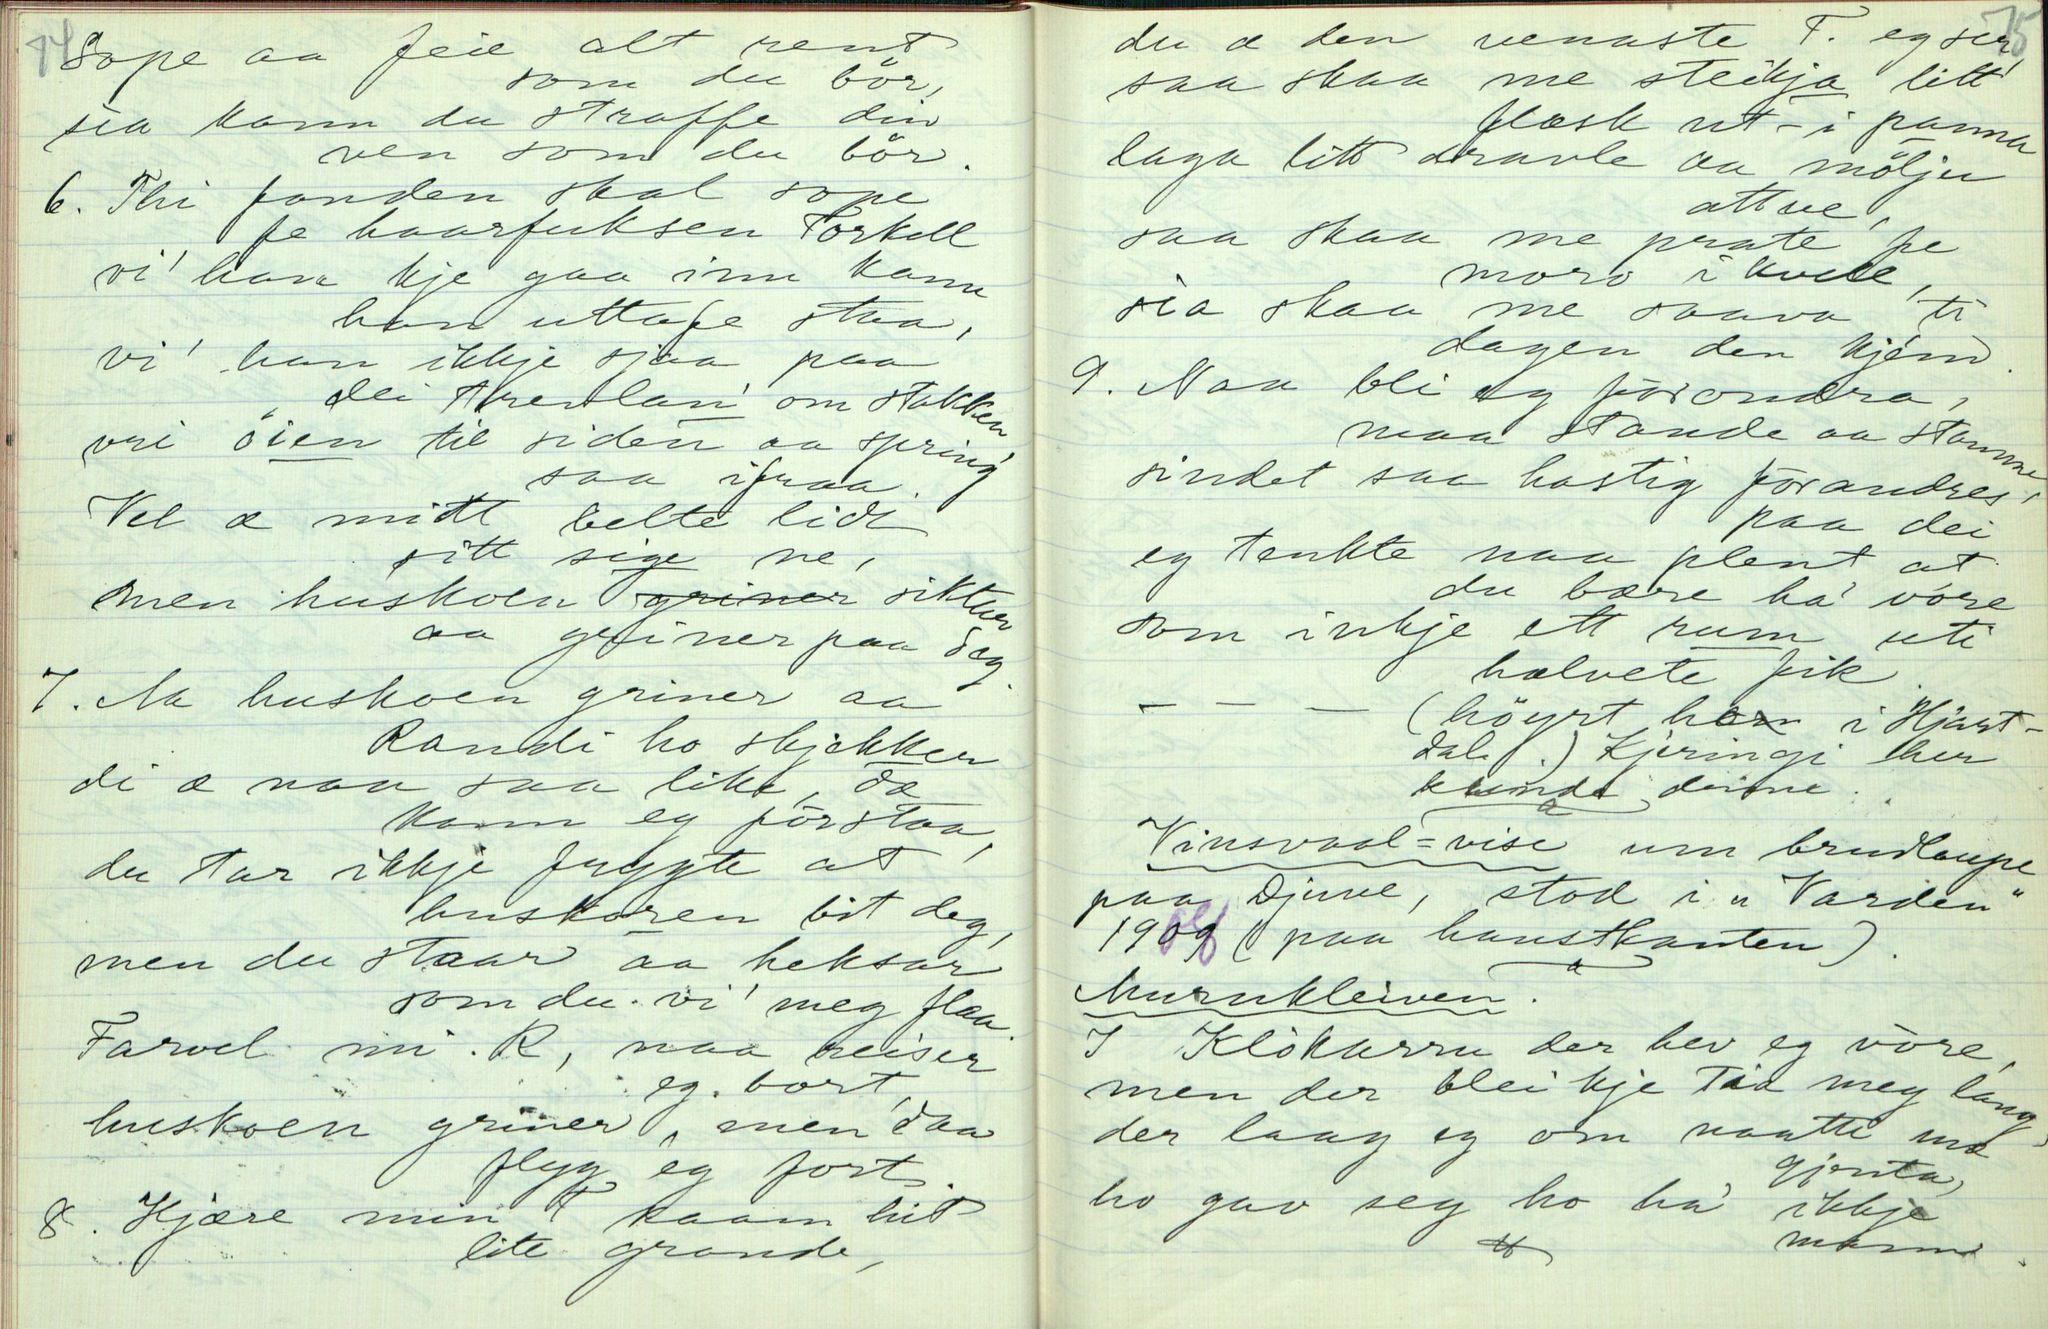 74
Sope aa feie alt rent
som du bör,
sia kann du straffe din
ven som du bör.
6. Thi fanden skal sope
fe haarfuksen Torkell
vi' han kje gaa inn kann
han uttafe staa,
vi' han ikkje sjaa paa
dei om stakken
vri öien til siden aa spring'
saa ifraa.
Vel æ mitt belte lidt
sitt sige ne,
men huskoen griner sikter
aa griner paa deg.
7. Aa huskoen griner aa
Randi ho skjekker
di æ naa saa like, dæ
kann eg förstaa,
du tar ikkje frygte at
huskoren bit deg,
men du staar aa heksar
som du vi' meg flaa.
Farvel mi R, naa reiser
eg bort,
huskoen griner, men daa
flyg eg fort.
8. Kjære min T kaam hit
lite grande,
75
du æ den venaste T. eg ser,
saa skaa me steikja litt
flæsk ut-i panna
laga litt dravle aa mölju
attve,
saa skaa me prate fe
moro i kvelle,
sia skaa me saava ti
dagen den kjem.
9. Naa bli eg förondra,
maa stande aa stamme,
sindet saa hastig förandres,
paa dei
eg tenkte naa plent at
du bære ha' vöre
som inkje ett rum uti
hælvete fik
– – – (höyrt han i Hjart-
dal.) Kjeringi her
kunde deime.
Vinsvaal=vise um brudlaupe
paa Djuve, stod i "Varden"
1909 (paa haustkanten).
Murukleiven.
I Klökarru der hev eg vöre,
men der blei kje Tia meg lang,
der laag eg om naatte mæ
gjenta,
ho gav seg ho ha' ikkje
mann.